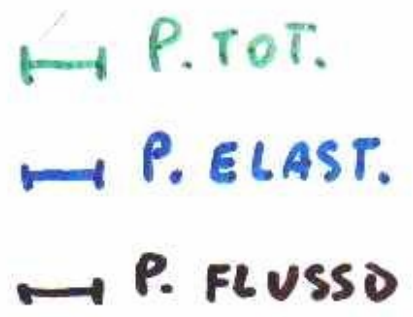 P. TOT.
P. ELAST.
P. FLUSSO